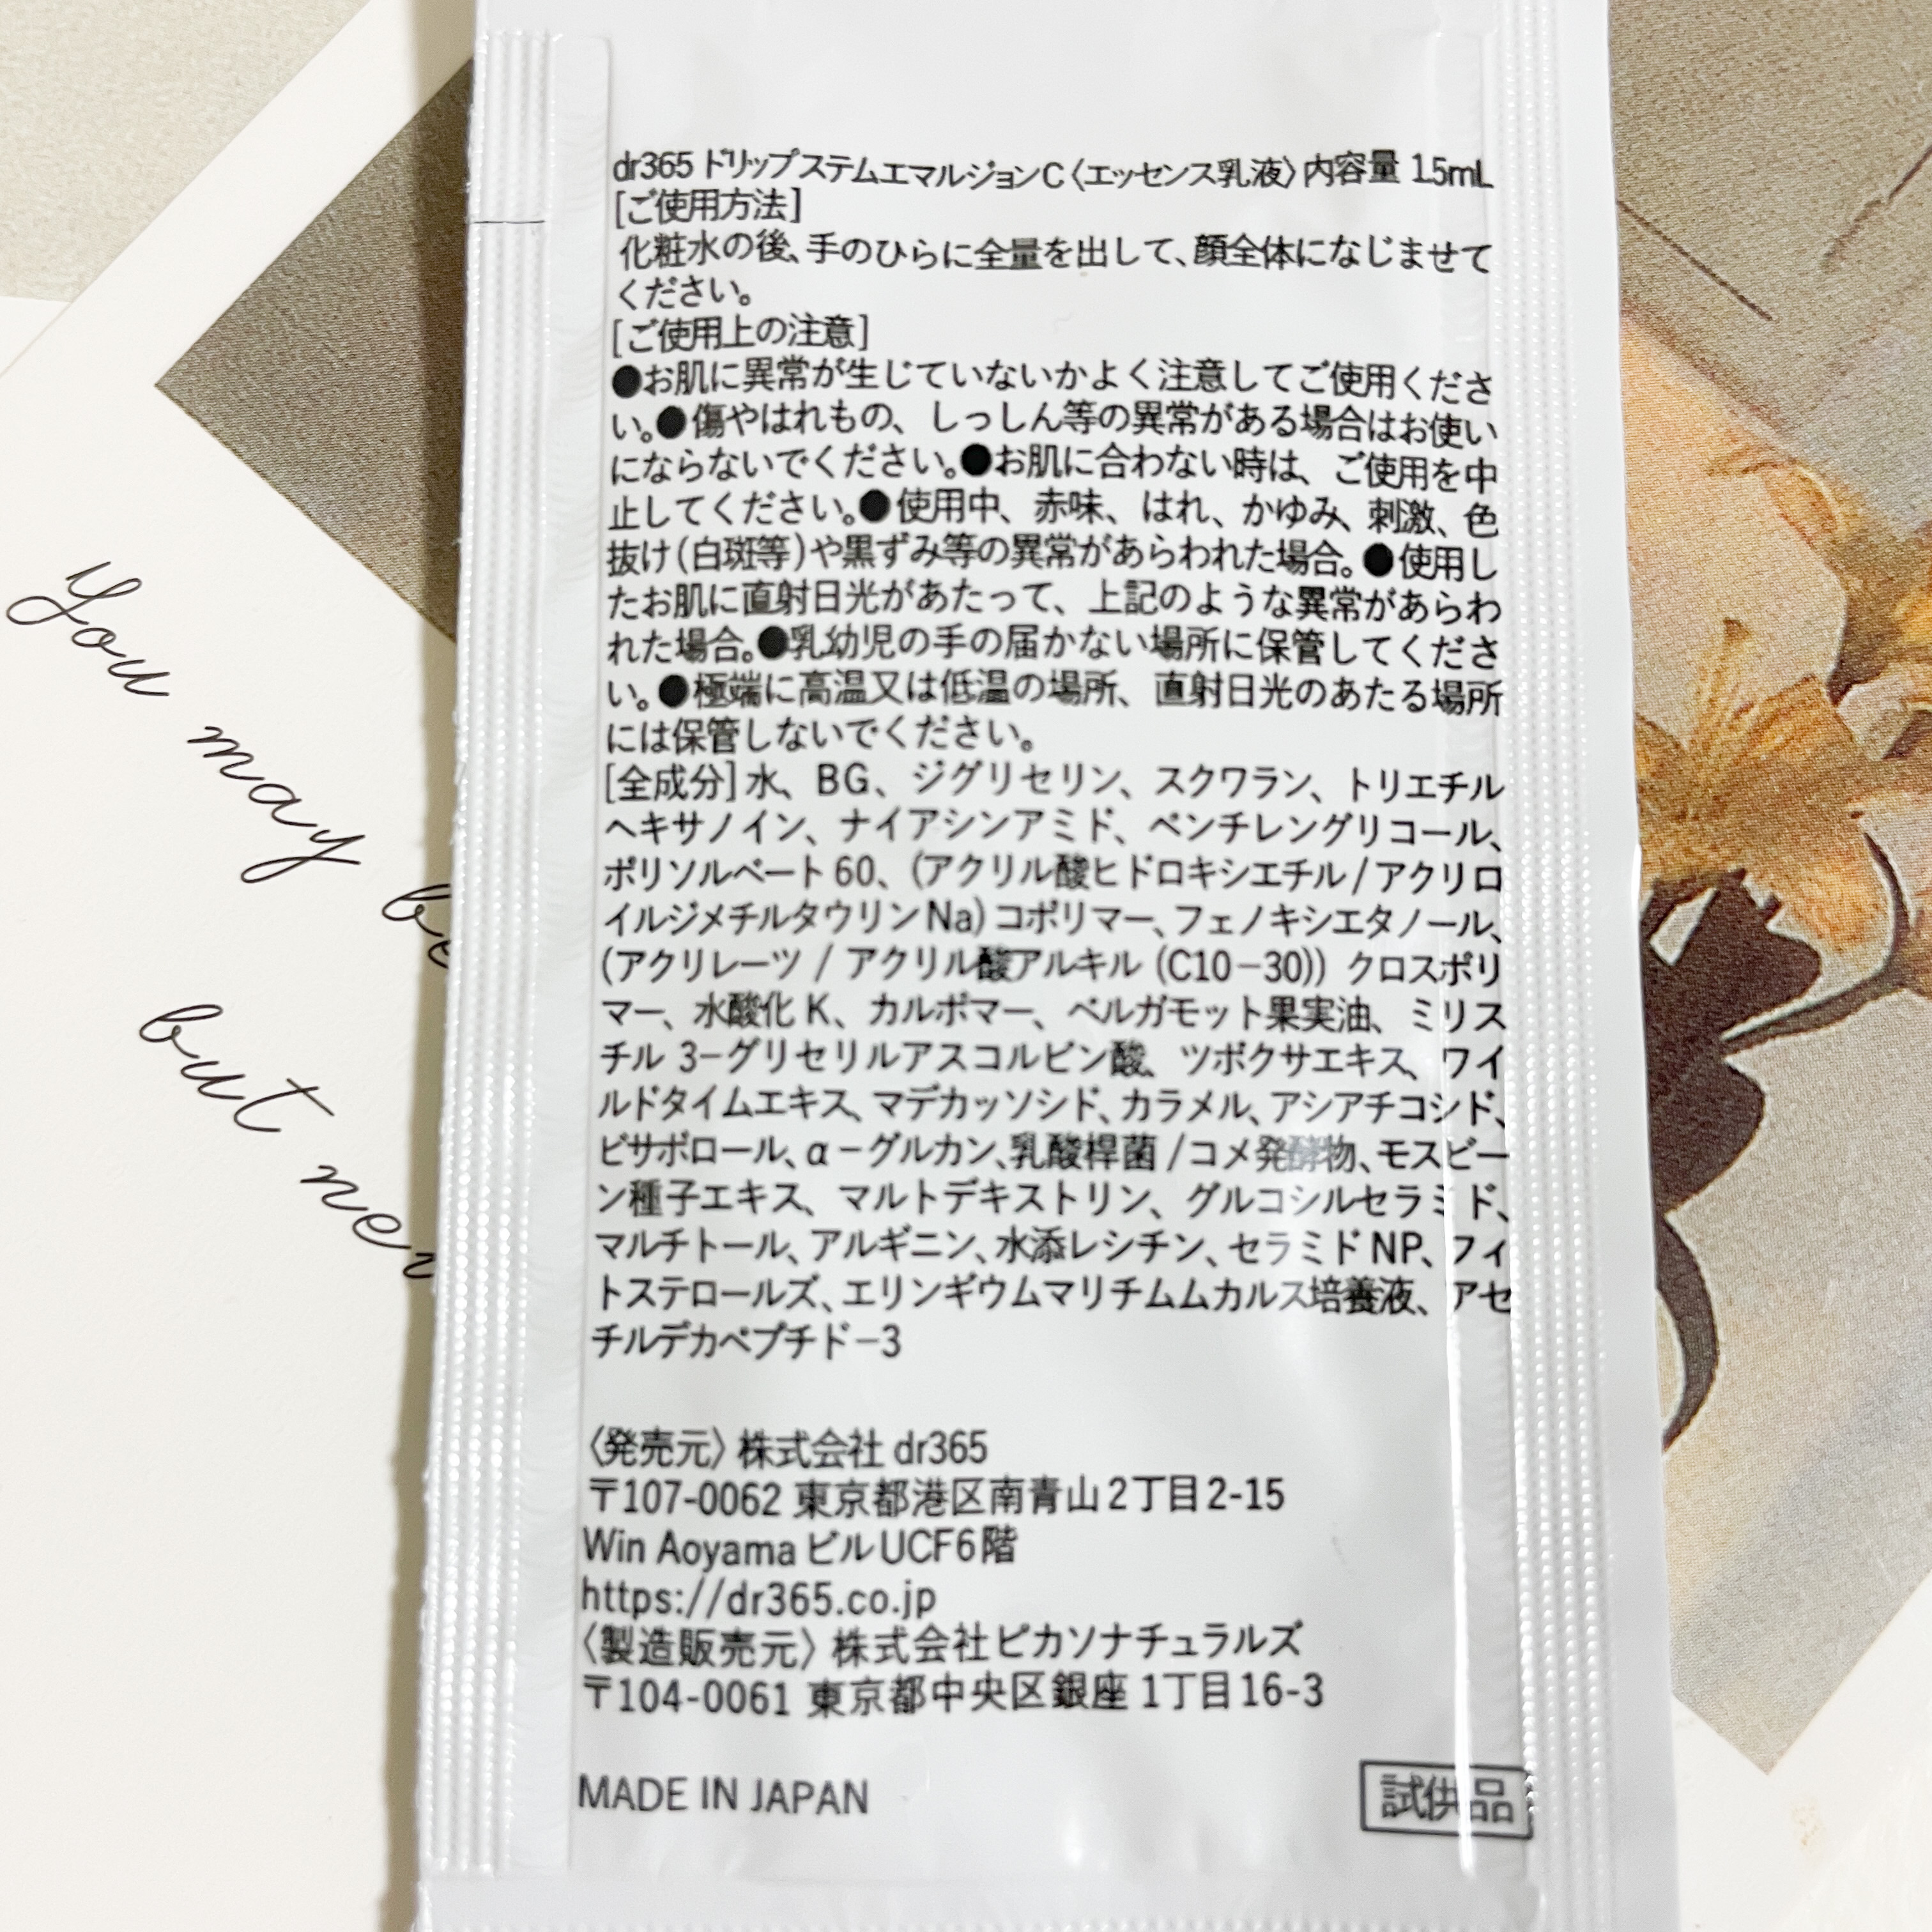 dr365 ドリップステムエマルジョンC〈エッセンス乳液〉内容量 1.5mL
[ご使用方法]
化粧水の後、手のひらに全量を出して、顔全体になじませて
ください。
[ご使用上の注意]
●お肌に異常が生じていないかよく注意してご使用くださ
い。●傷やはれもの、しっしん等の異常がある場合はお使い
にならないでください。●お肌に合わない時は、ご使用を中
止してください。●使用中、赤味、はれ、かゆみ、刺激、色
抜け(白斑等)や黒ずみ等の異常があらわれた場合。●使用し
たお肌に直射日光があたって、上記のような異常があらわ
れた場合。●乳幼児の手の届かない場所に保管してくださ
い。●極端に高温又は低温の場所、直射日光のあたる場所
には保管しないでください。
[全成分]水、BG、ジグリセリン、スクワラン、トリエチル
ヘキサノイン、ナイアシンアミド、ペンチレングリコール、
ポリソルベート 60、(アクリル酸ヒドロキシエチル/アクリロ
イルジメチルタウリンNa)コポリマー、フェノキシエタノール、
(アクリレーツ / アクリル酸アルキル (C10-30)) クロスポリ
マー、水酸化 K、カルボマー、ベルガモット果実油、ミリス
チル 3-グリセリルアスコルビン酸、ツボクサエキス、ワイ
ルドタイムエキス、マデカッソシド、カラメル、アシアチコシド、
ビサボロール、α-グルカン、乳酸桿菌/コメ発酵物、モスビー
ン種子エキス、マルトデキストリン、グルコシルセラミド、
マルチトール、アルギニン、水添レシチン、セラミドNP、フィ
トステロールズ、エリンギウムマリチムムカルス培養液、アセ
チルデカペプチド-3
〈発売元〉株式会社 dr365
〒107-0062 東京都港区南青山2丁目2-15
Win Aoyama ビルUCF6階
https://dr365.co.jp
〈製造販売元〉株式会社ピカソナチュラルズ
〒104-0061 東京都中央区銀座 1丁目16-3
MADE IN JAPAN
試供品
You may be
but